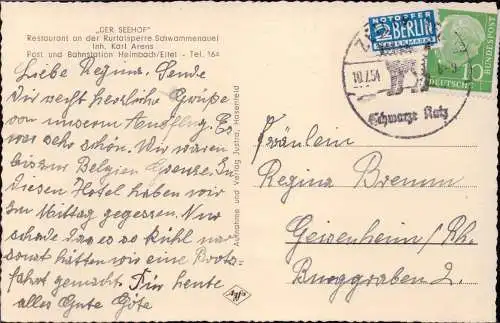 "DER SEEHOF"
Restaurant an der Rurtalsperre Schwammenauel
Inh. Karl Arens
Post und Bahnstation Heimbach/Eifel - Tel. 164
Liebe Regina. Sende
Dir recht herzliche Grüße
von unserm Ausflug. Es
war sehr schön. Wir waren
bis zur Belgien Grenze. In
diesen Hotel haben wir
zu Mittag gegessen. Nur
schade das es so kühl war
sonst hätten wir eine Boots-
fahrt gemacht. Für heute
alles Gute Göte
Aufnahme und Verlag Justra, Hasenfeld
Agfa
NOTOPFER
2 BERLIN
STEUERMARKE
DEUTSCHE
BUNDESPOST
10
10.7.54
Schwarze Katz
Fräulein
Regina Bremm
Geisenheim/Rh.
Burggraben 2.